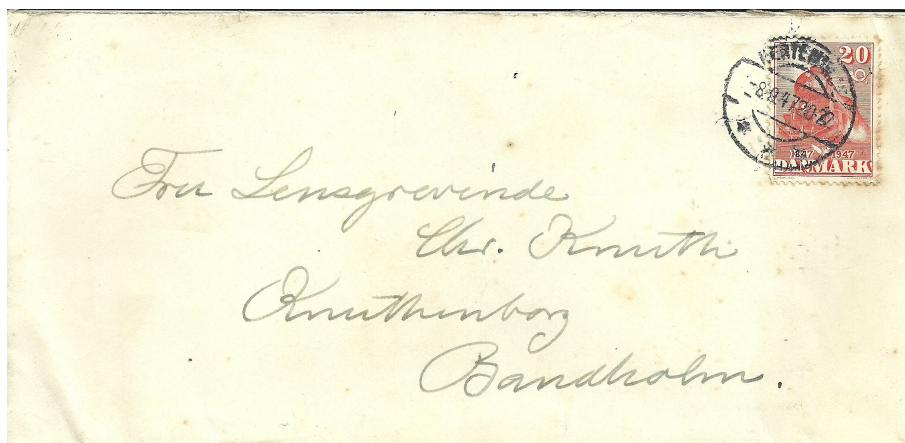 20
1847 1947
DANMARK
Fru Lensgrevinde
Chr. Knuth
Knuthenborg
Bandholm.